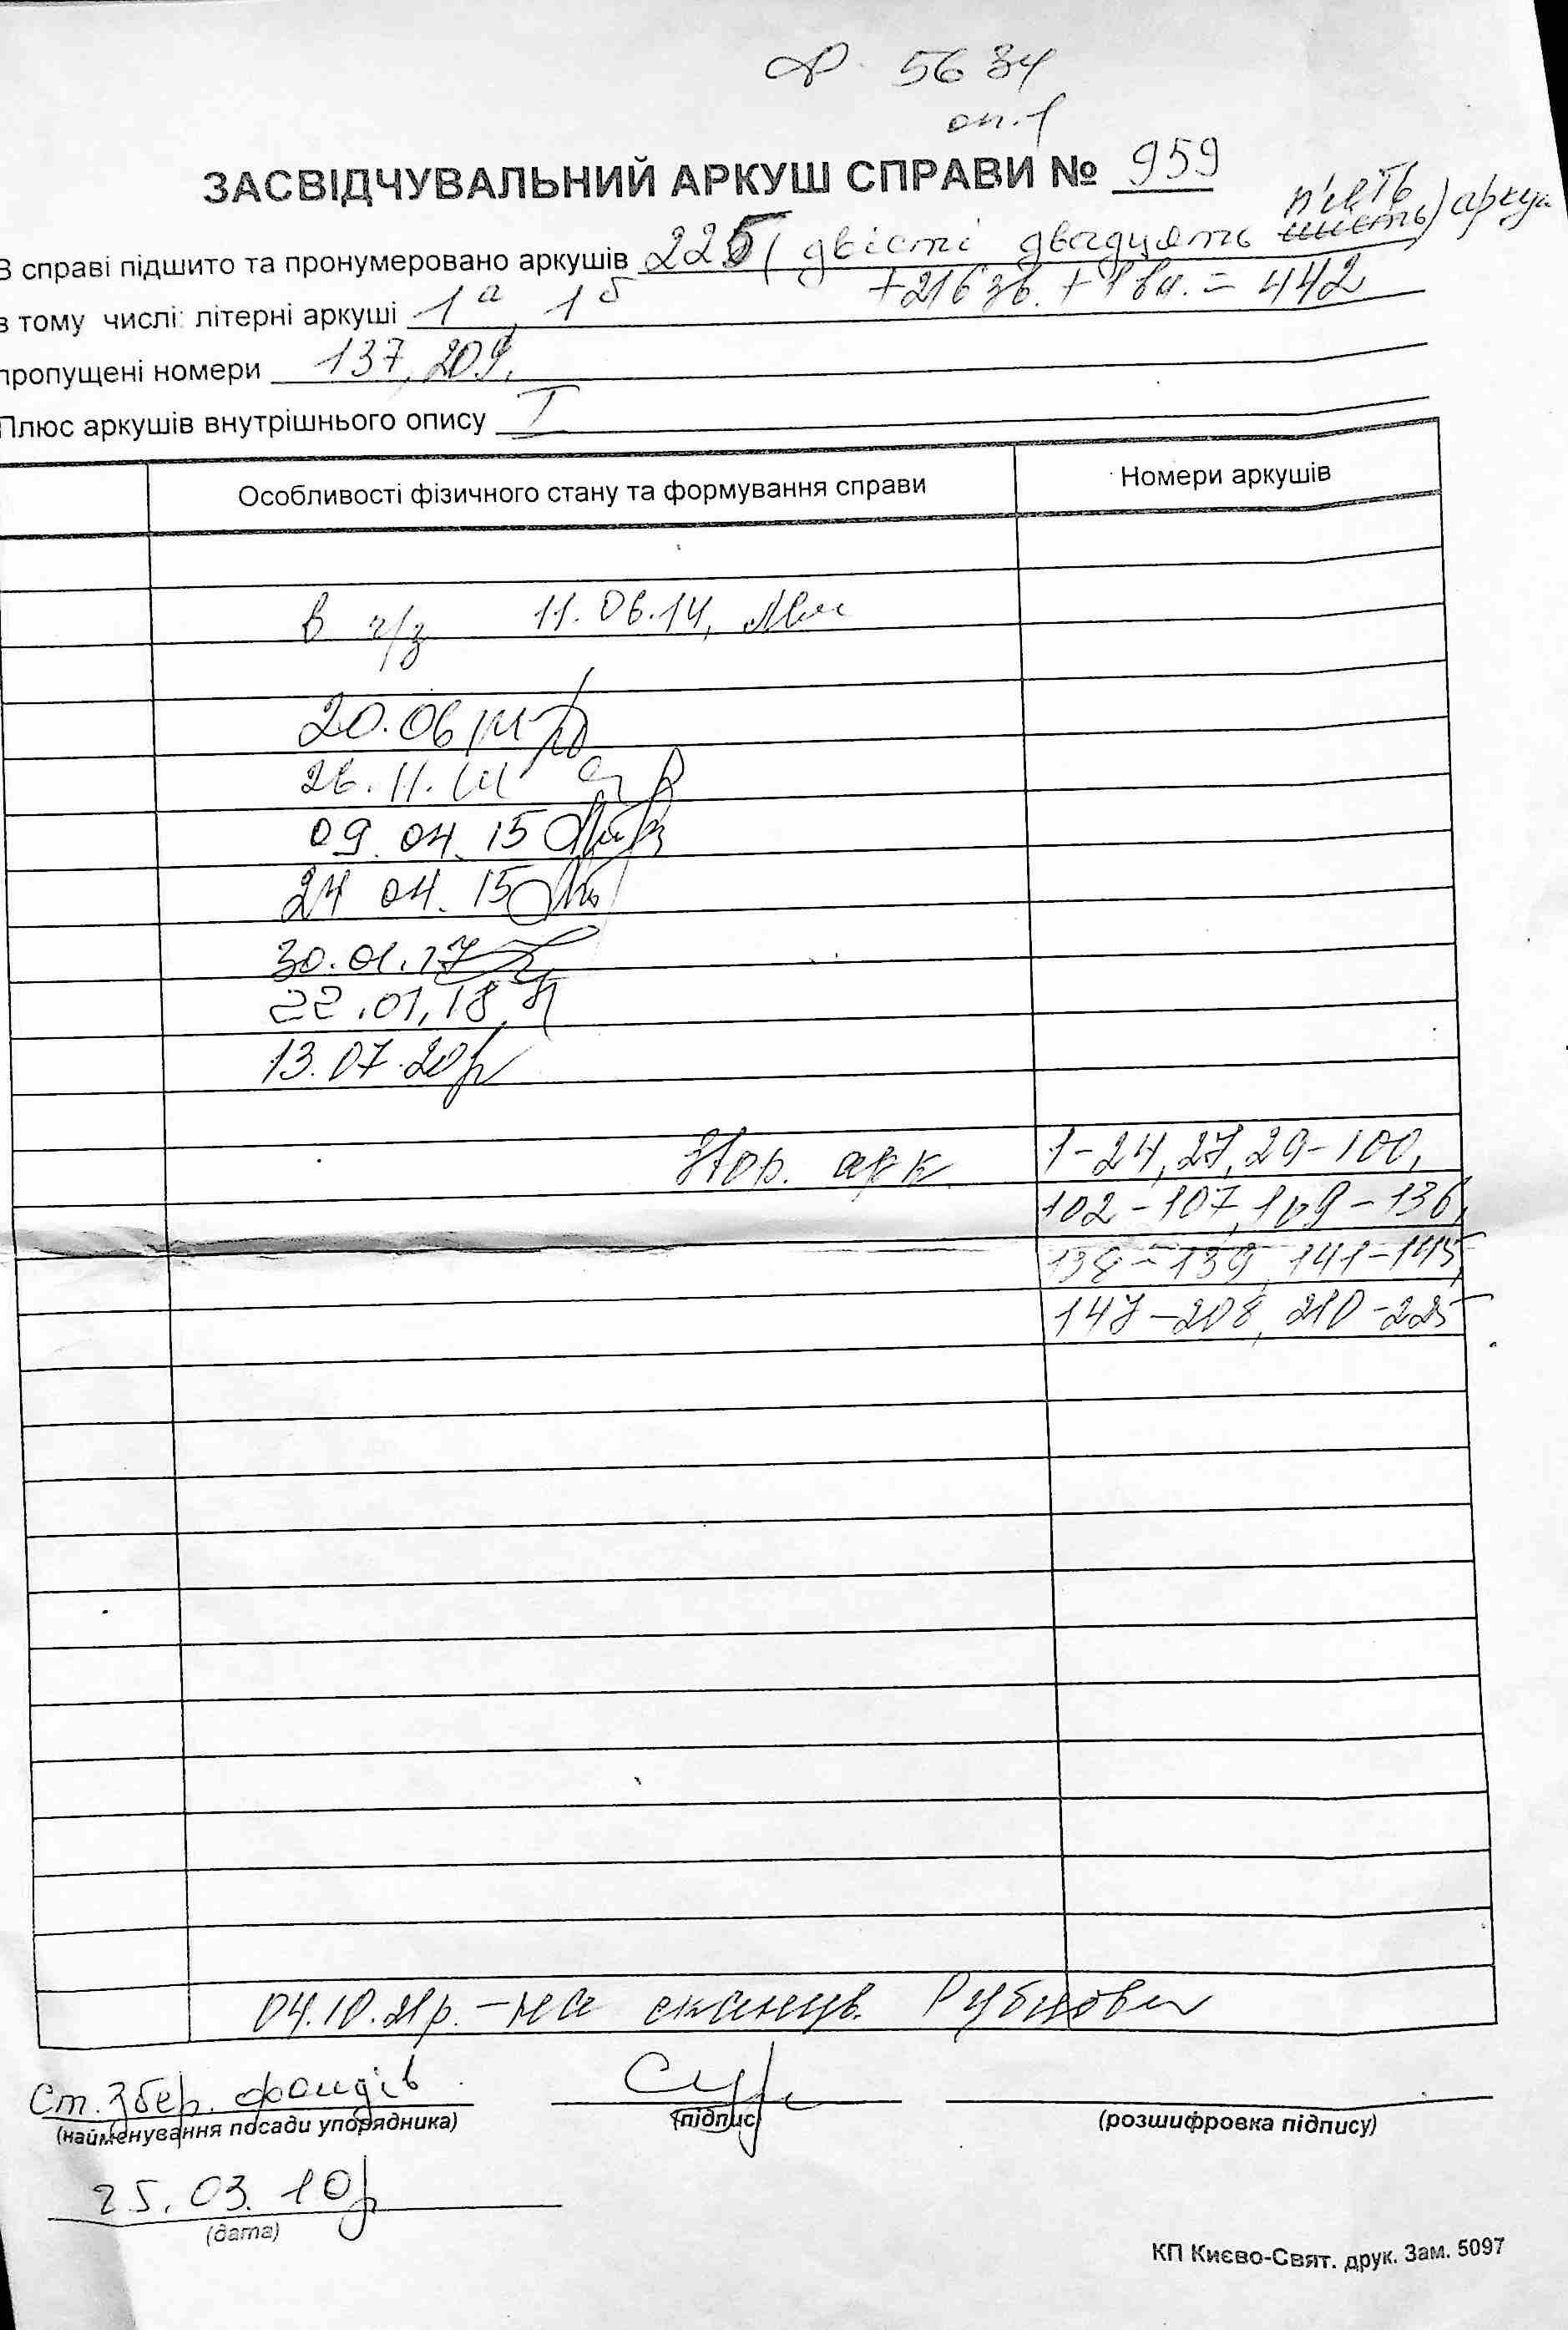 Ф. 5634
оп. 1
ЗАСВІДЧУВАЛЬНИЙ АРКУШ СПРАВИ № 959
В справі підшито та пронумеровано аркушів 225 (двісті двадцять шість п'ять) аркуш
+216 зв. + 1 вн. = 442
з тому числі: літерні аркуші 1а, 1б
пропущені номери 137, 209.
Плюс аркушів внутрішнього опису I
Особливості фізичного стану та формування справи Номери аркушів
В ч/з 11.06.14,
20.06.14
26.11.14
09.04.15
24.04.15
30.01.17
22.01.18
13.07.20р
Звор. арк. 1-24, 27, 29-100,
102-107, 109-136,
138-139, 141-145,
147-208, 210-225
04.10.21р. - на сканув. Рубцова
Ст. збер. фондів
(найменування посади упорядника) (підпис) (розшифровка підпису)
25.03.10р
(дата)
КП Києво-Свят. друк. Зам. 5097